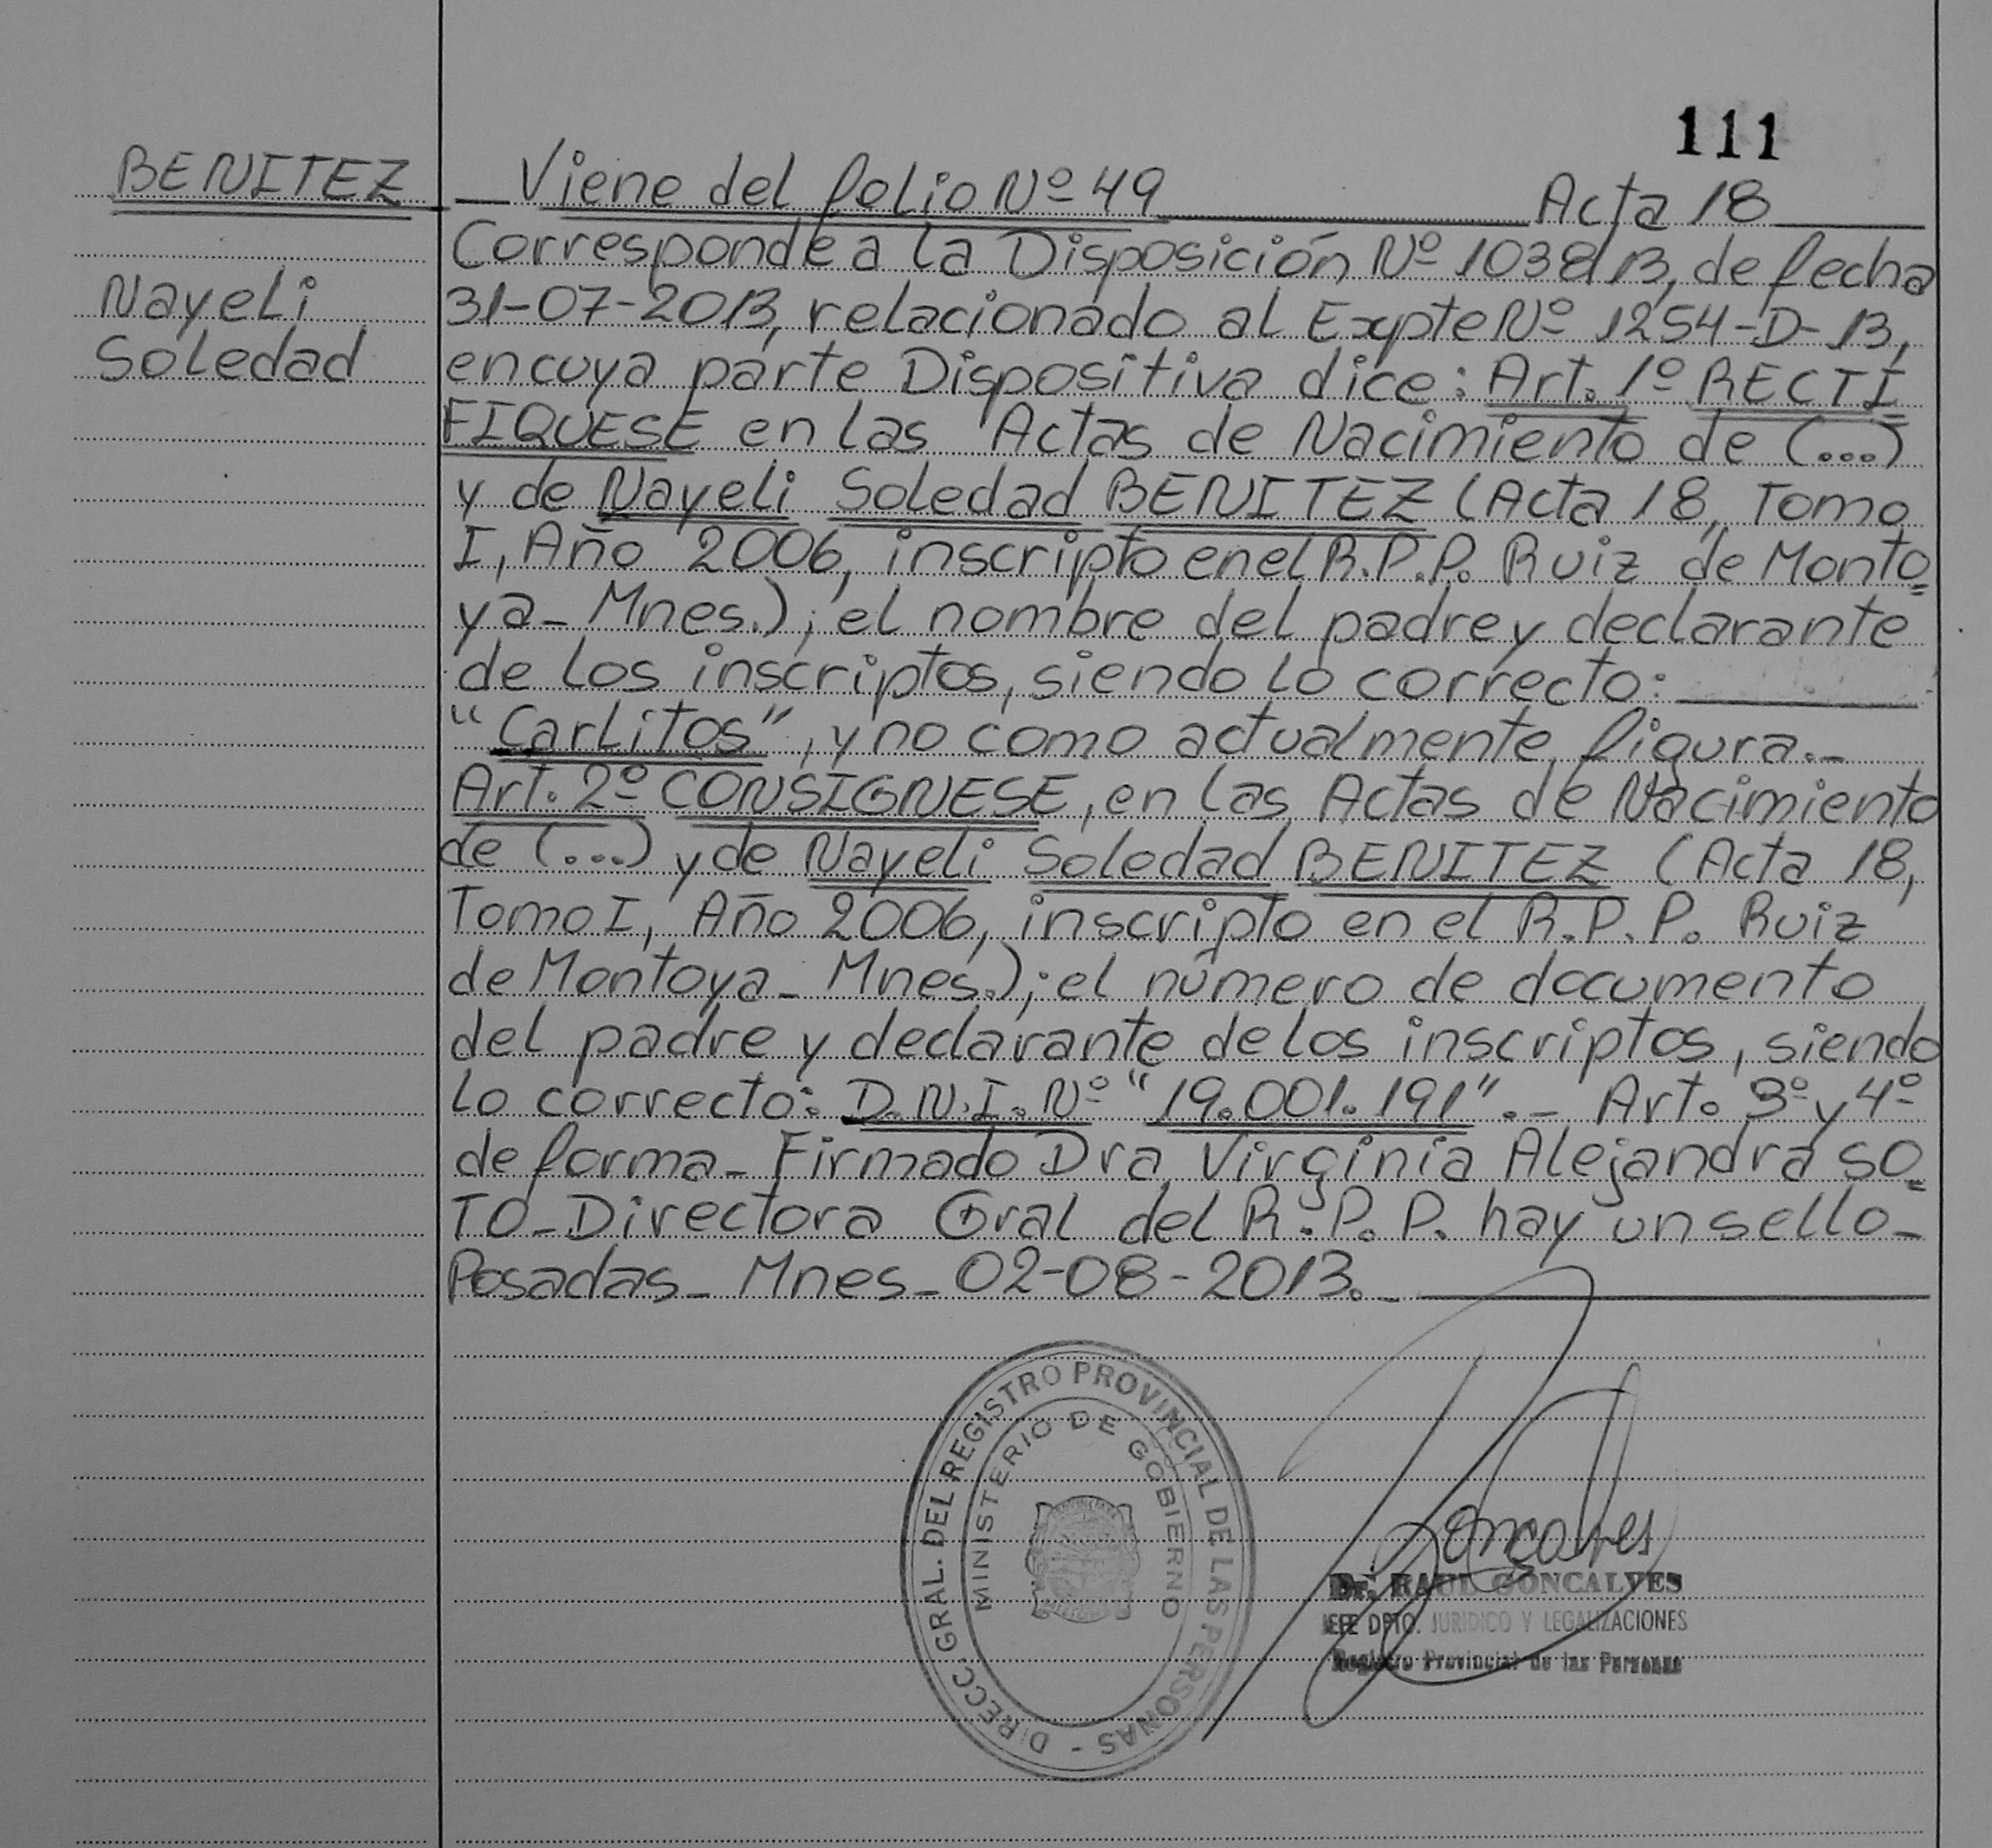 111
BENITEZ
Nayeli
Soledad
Viene del folio Nº 49 Acta 18
Corresponde a la Disposición Nº 1038/13, de fecha
31-07-2013, relacionado al Expte Nº 1254-D-13,
en cuya parte Dispositiva dice: Art. 1º RECTI
FIQUESE en las Actas de Nacimiento de (...)
y de Nayeli Soledad BENITEZ (Acta 18, Tomo
I, Año 2006, inscripto en el R.P.P. Ruiz de Monto=
ya_ Mnes.); el nombre del padre y declarante
de los inscriptos, siendo lo correcto:
"Carlitos", y no como actualmente figura._
Art. 2º CONSIGNESE, en las Actas de Nacimiento
de (...) y de Nayeli Soledad BENITEZ (Acta 18,
Tomo I, Año 2006, inscripto en el R.P.P. Ruiz
de Montoya_ Mnes.); el número de documento
del padre y declarante de los inscriptos, siendo
lo correcto: D.N.I. Nº "19.001.191"._ Art. 3º y 4º
de forma_ Firmado Dra Virginia Alejandra SO=
TO_ Directora Gral del R.P.P. hay un sello_
Posadas_ Mnes_ 02-08-2013._
DIRECC. GRAL. DEL REGISTRO PROVINCIAL DE LAS PERSONAS -
MINISTERIO DE GOBIERNO
Goncalves
Dr. RAUL GONCALVES
JEFE DPTO. JURIDICO Y LEGALIZACIONES
Registro Provincial de las Personas